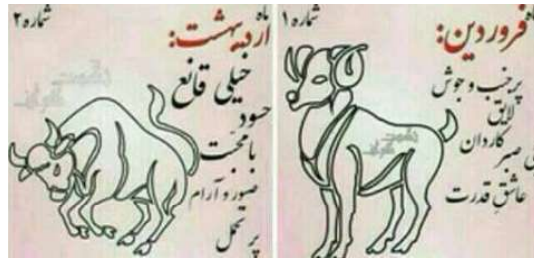 ماه
شماره ۱
فروردین:
پر جنب و جوش
لایق
کاردان
بی صبر
عاشق قدرت
ماه
شماره ۲
اردیبهشت:
خیلی قانع
حسود
با محبت
صبور و آرام
پر تحمل